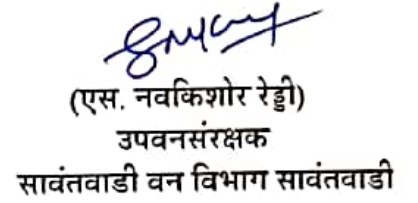 (एस. नवकिशोर रेड्डी)
उपवनसंरक्षक
सावंतवाडी वन विभाग सावंतवाडी